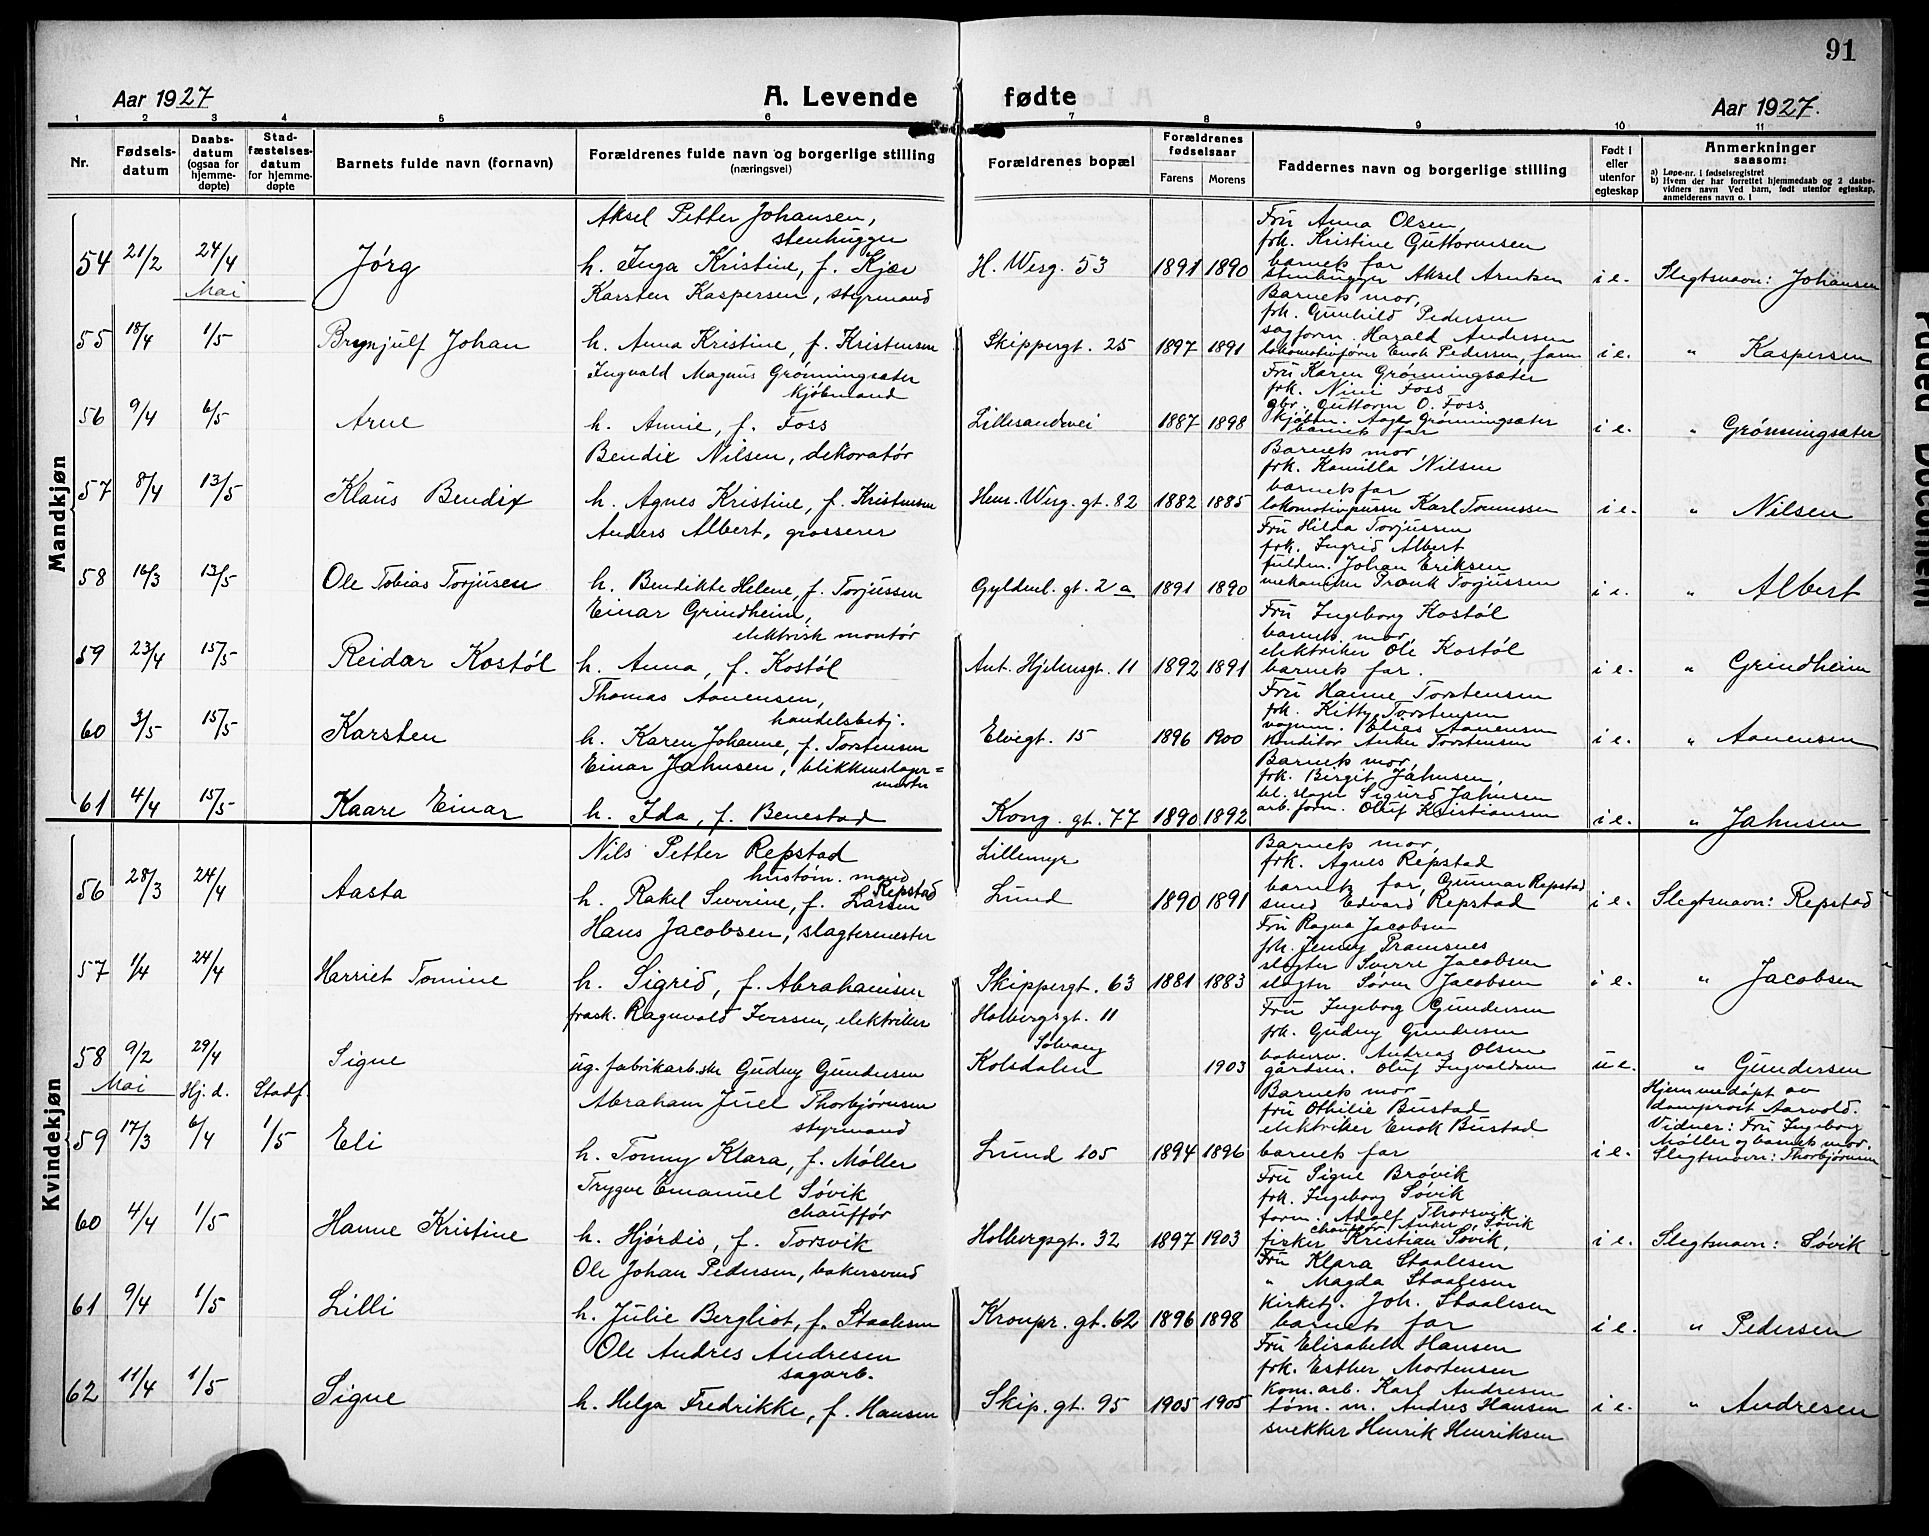 91
Aar 1927
A. Levende fødte
Aar 1927.
1 2 3 4 5 6 7 8 9 10 11
Nr.
Fødsels-
datum
Daabs-
datum
(ogsaa for
hjemme-
døpte)
Stad-
fæstelses-
datum
for hjemme-
døpte
Barnets fulde navn (fornavn)
Forældrenes fulde navn og borgerlige stilling
(næringsvei)
Forældrenes bopæl
Forældrenes
fødselsaar
Farens Morens
Faddernes navn og borgerlige stilling
Født i
eller
utenfor
egteskap
Anmerkninger
saasom:
a) Løpe-nr. i fødselsregistret
b) Hvem der har forrettet hjemmedaab og 2 daabs-
vidners navn Ved barn, født utenfor egteskap,
anmelderens navn o. l
Mandkjøn
Aksel Petter Johansen,
stenhugger
54 21/2 24/4 Jörg h. Inga Kristine, f. Kjær H. Werg. 53 1891 1890
Fru Anna Olsen,
frk. Kristine Guttormsen
barnets far
stenhugger Aksel Arntsen i e. Slegtsnavn: Johansen
Mai
Karsten Kaspersen, styrmand
55 18/4 1/5 Brynjulf Johan h. Anna Kristine, f. Kristensen Skippergt. 25 1897 1891
Barnets mor,
frk. Gunhild Pedersen
sagform. Harald Andersen
lokomotivfører Enok Pedersen, farm i e. " Kaspersen
Ingvald Magnus Grönningsæter
kjøbmand
56 9/4 6/5 Arne h. Annie, f. Foss Lillesandsvei 1887 1898
Fru Karen Grönningsæter
frk. Nini Foss
gbr. Guttorm O. Foss
kjøbm. Aage Grönningsæter
barnets far i e. " Grönningsæter
Bendix Nilsen, dekoratør
57 8/4 13/5 Klaus Bendix h. Agnes Kristine, f. Kristensen Henr. Werg. gt. 82 1882 1885
Barnets mor,
frk. Kamilla Nilsen
barnets far
lokomotivpusser Karl Tønnessen i e. " Nilsen
Anders Albert, grosserer
58 16/3 13/5 Ole Tobias Torjusen h. Bendikte Helene, f. Torjussen Gyldenl. gt. 2a 1891 1890
Fru Hilda Torjussen
frk. Ingrid Albert
fuldm. Johan Eriksen
mekaniker Frank Torjussen i e. " Albert
Einar Grindheim,
elektrisk montör
59 23/4 15/5 Reidar Kostöl h. Anna, f. Kostöl Ant. Hjelmsgt. 11 1892 1891
Fru Ingeborg Kostöl
barnets mor,
elektriker Ole Kostöl
barnets far. i e. " Grindheim
Thomas Aanensen,
handelsbetj.
60 3/5 15/5 Karsten h. Karen Johanne, f. Torstensen Elvegt. 15 1896 1900
Fru Hanne Torstensen
frk. Kitty Torstensen
vognm. Elias Aanensen
konditor Anker Torstensen i e. " Aanensen
Einar Jahnsen, blikkenslager=
mester
61 4/4 15/5 Kaare Einar h. Ida, f. Benestad Kong. gt. 77 1890 1892
Barnets mor,
frk. Birgit Jahnsen,
bl. slager Sigurd Jahnsen
arb. form. Oluf Kristiansen i e. " Jahnsen
Kvindekjøn
Nils Petter Repstad
hustöm. mand
56 28/3 24/4 Aasta h. Rakel Severine, f. Larsen Repstad Lillemyr Lund 1890 1891
Barnets mor,
frk. Agnes Repstad
barnets far, Gunnar Repstad
smed Edvard Repstad i e. Slegtsnavn: Repstad
Hans Jacobsen, slagtermester
57 1/4 24/4 Harriet Tomine h. Sigrid, f. Abrahamsen Skippergt. 63 1881 1883
Fru Ragna Jacobsen
frk. Jenny Framnes
slagter Sverre Jacobsen
slagter Sören Jacobsen i e. " Jacobsen
frask. Ragnvald Iversen, elektriker Holbergsgt. 11
58 9/2 29/4 Signe ug. fabrikarb.ske Gudny Gundersen Solvang Kolsdalen 1903
Fru Ingeborg Gundersen
frk. Gudny Gundersen
bakersv. Andreas Olsen
gårdsm. Oluf Ingvaldsen u e. " Gundersen
Mai Hj. d. Stadf.
Abraham Juel Thorbjørnsen
styrmand
59 17/3 6/4 1/5 Eli h. Tonny Klara, f. Møller Lund 105 1894 1896
Barnets mor
fru Othilie Bustad
elektriker Enok Bustad
barnets far i e.
Hjemmedøpt av
domprost Aarvold.
Vidner: Fru Ingeborg
Møller og barnets mor.
Slegtsnavn: Thorbjørnsen
Trygve Emanuel Søvik
chauffør
60 4/4 1/5 Hanne Kristine h. Hjördis, f. Torsvik Holbergsgt. 32 1897 1903
Fru Signe Brøvik
frk. Ingeborg Søvik
form. Adolf Thorsvik
chauffør Anker Søvik
fisker Kristian Søvik, i e. Slegtsnavn: Søvik
Ole Johan Pedersen, bakersvend
61 9/4 1/5 Lilli h. Julie Bergliot, f. Staalesen Kronpr. gt. 62 1896 1898
Fru Klara Staalesen
" Magda Staalesen
kirketj. Joh. Staalesen
barnets far i e. " Pedersen
Ole Andres Andresen
sagarb.
62 11/4 1/5 Signe h. Helga Fredrikke, f. Hansen Skip. gt. 95 1905 1905
Fru Elisabeth Hansen
frk. Esther Mortensen
kom. arb. Karl Andresen
tøm. m. Andres Hansen
snekker Henrik Henriksen i e. " Andresen